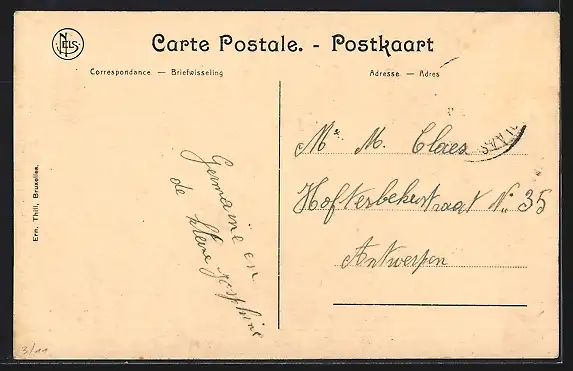 NELS
Carte Postale. - Postkaart
Correspondance — Briefwisseling
Adresse — Adres
Mr. M. Claes
WAAS
Hofterbekestraat No. 35
Antwerpen
Germaine en
de kleine josephine
Ern. Thill, Bruxelles.
3/11